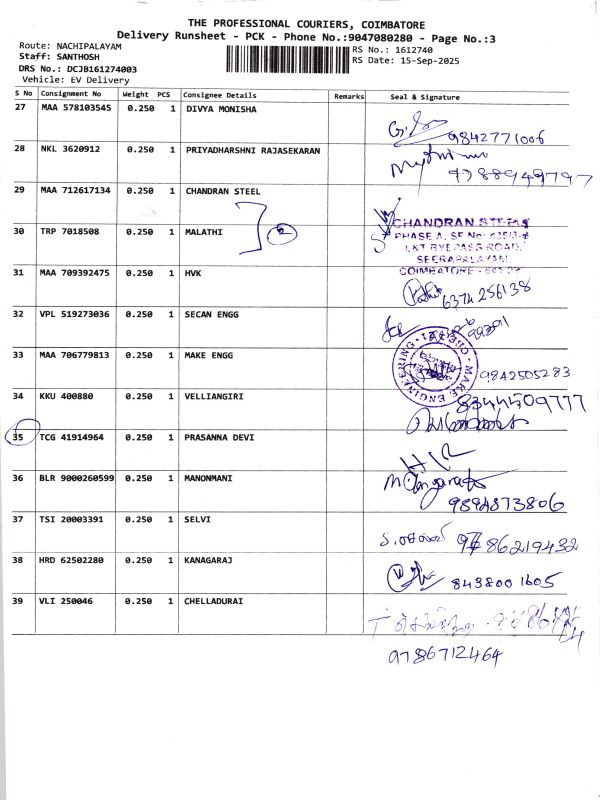 THE PROFESSIONAL COURIERS, COIMBATORE
Delivery Runsheet - PCK - Phone No.:9047080280 - Page No.:3
Route: NACHIPALAYAM
Staff: SANTHOSH
DRS No.: DCJB161274003
Vehicle: EV Delivery
RS No.: 1612740
RS Date: 15-Sep-2025
S No Consignment No Weight PCS Consignee Details Remarks Seal & Signature
27 MAA 578103545 0.250 1 DIVYA MONISHA
9842771006
28 NKL 3620912 0.250 1 PRIYADHARSHNI RAJASEKARAN
9788949797
29 MAA 712617134 0.250 1 CHANDRAN STEEL
CHANDRAN STEEL
30 TRP 7018508 0.250 1 MALATHI
2
PHASE A, SF No:
L&T BYEPASS ROAD
SEERAPALAYAM
COIMBATORE
31 MAA 709392475 0.250 1 HVK
6374256138
32 VPL 519273036 0.250 1 SECAN ENGG
33 MAA 706779813 0.250 1 MAKE ENGG
MAKE ENGINEERING
9842505283
34 KKU 400880 0.250 1 VELLIANGIRI
8344509777
35 TCG 41914964 0.250 1 PRASANNA DEVI
36 BLR 9000260599 0.250 1 MANONMANI
9894873806
37 TSI 20003391 0.250 1 SELVI
9786219432
38 HRD 62502280 0.250 1 KANAGARAJ
8438001605
39 VLI 250046 0.250 1 CHELLADURAI
9786712464